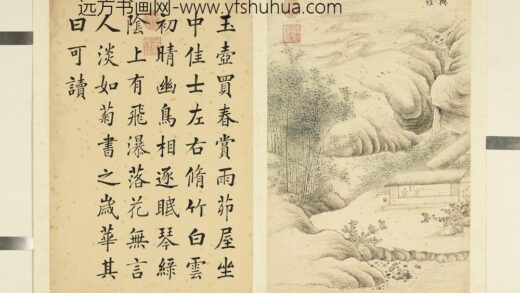 远方书画网 www.yfshuhua.com
玉壺買春賞雨茆屋坐
中佳士左右脩竹白雲
初晴幽鳥相逐眠琴綠
陰上有飛瀑落花無言
人淡如菊書之歲華其
曰可讀